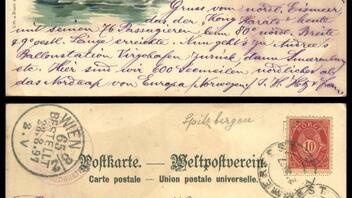 Gruss vom nördl. Eismeer
das der "Kong Harald" heute
mit seinen 76 Passagieren beim 80° nördl. Breite
& 9° östl. Länge erreichte. Nun geht's zu Andree's
Ballonstation Virgohafen zurück, dann Smeerenburg
etc. Hier sind wir 600 Seemeilen nördlicher als
das Nordcap von Europa, Norwegen,
Spitzbergen
WIEN 8/2
65
BESTELLT
26.8.97
8 V
Postkarte. — Weltpostverein.
Carte postale — Union postale universelle.
NORGE
10